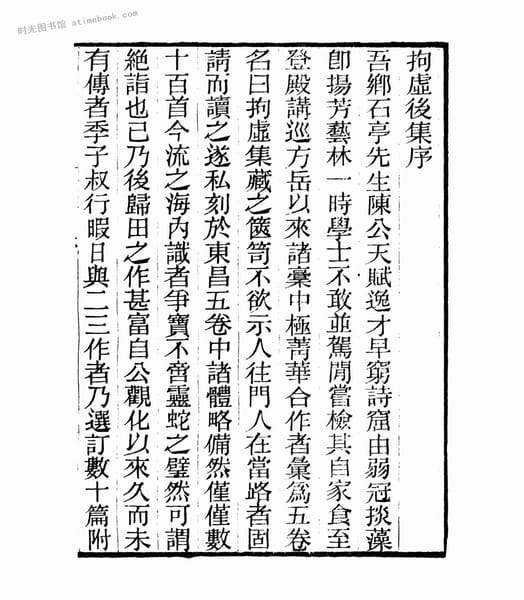 时光图书馆 atimebook.com
拘虛後集序
吾鄉石亭先生陳公天賦逸才早窮詩窟由弱冠掞藻
卽揚芳藝林一時學士不敢並駕閒嘗檢其自家食至
登殿講巡方岳以來諸稾中極菁華合作者彙爲五卷
名曰拘虛集藏之篋笥不欲示人往門人在當路者固
請而讀之遂私刻於東昌五卷中諸體略備然僅僅數
十百首今流之海內識者爭寶不啻靈蛇之璧然可謂
絕詣也已乃後歸田之作甚富自公觀化以來久而未
有傳者季子叔行暇日與二三作者乃選訂數十篇附